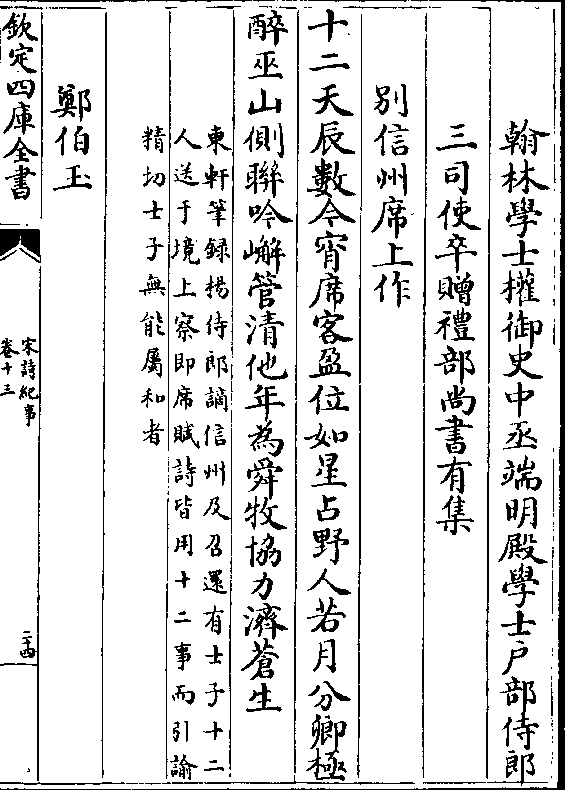 翰林學士權御史中丞端明殿學士戶部侍郎
三司使卒贈禮部尚書有集
別信州席上作
十二天辰數今宵席客盈位如星占野人若月分卿極
醉巫山側聯吟嶰管清他年為舜牧協力濟蒼生
東軒筆録楊侍郎謫信州及召還有士子十二
人送于境上察即席賦詩皆用十二事而引諭
精切士子無能屬和者
鄭伯玉
欽定四庫全書
宋詩紀事
卷十三
二十四